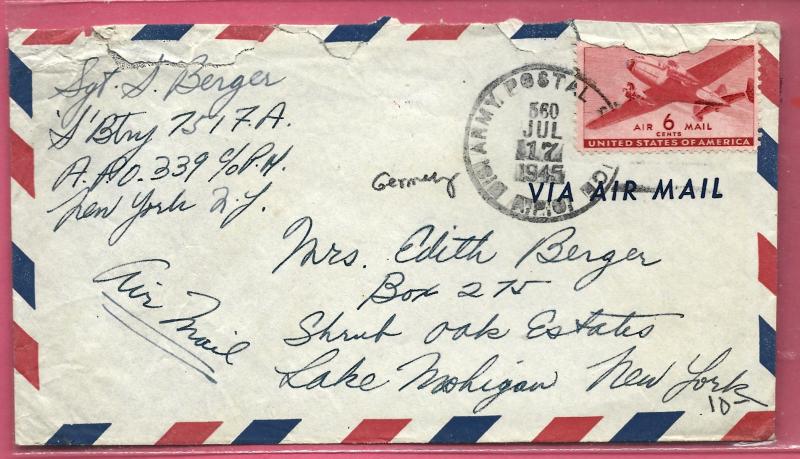 Sgt. S. Berger
'S' Btry 751 F.A.
A.P.O. 339 c/o P.M.
New York N.Y.
Germany
Air Mail
U.S. ARMY POSTAL
560
JUL
17
1945
A.P.O.
AIR 6 MAIL
CENTS
UNITED STATES OF AMERICA
VIA AIR MAIL
Mrs. Edith Berger
Box 275
Shrub Oak Estates
Lake Mohigan New York
10-